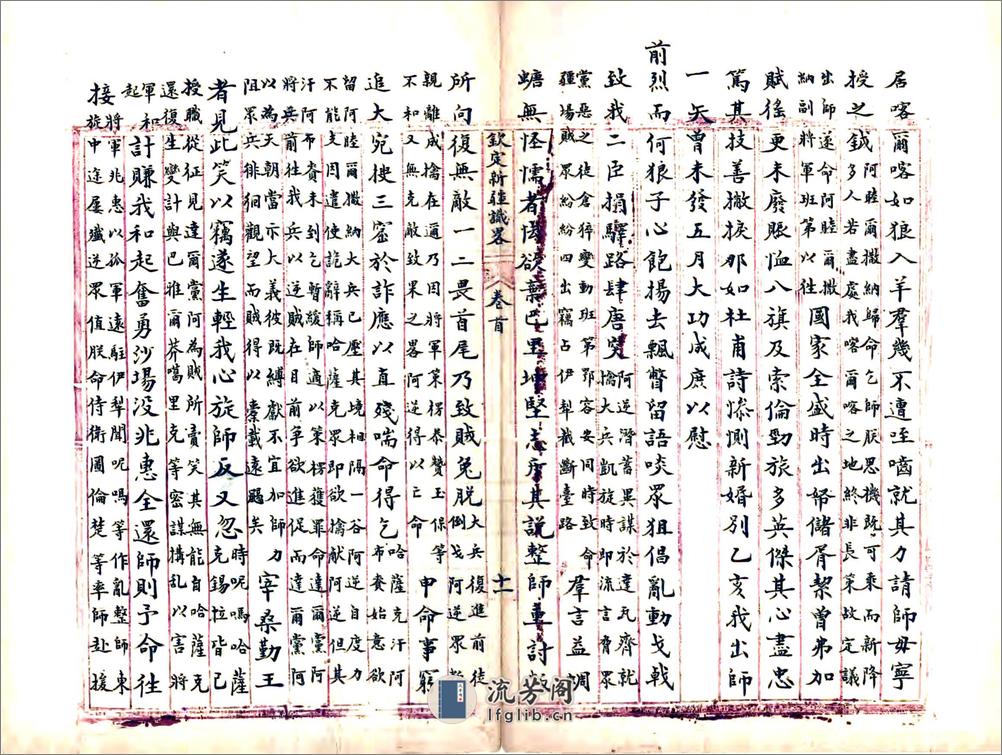 居喀爾喀如狼入羊羣幾不遭咥嚙就其力請師毋寧
授之鉞阿睦爾撒納歸命乞師朕思機既可乘而新降
多人若盡處我喀爾喀之地終非長策故定議
出師遂命阿睦爾撒
納副將軍班第以往
國家全盛時出帑儲胥挈曾弗加
賦徭更未廢賑恤八旗及索倫勁旅多英傑其心盡忠
篤其技善撇捩那如杜甫詩慘惻新婚別乙亥我出師
一矢曾未發五月大功成庶以慰
前烈而何狼子心飽揚去飄瞥留語啖眾狙倡亂動戈戟
致我二臣捐驛路肆唐突
阿逆潛蓄異謀於達瓦齊就
擒大兵凱旋時即流言脅眾
黨惡之徒倉猝變動班第鄂容安同時致命
疆場賊眾紛紛四出竊占伊犁截斷臺路
羣言益蜩
螗無怪懦者怯欲棄巴里坤堅志斥其說整師重討
欽定新疆識畧 卷首 十一
所向復無敵一二畏首尾乃致賊兔脫
大兵復進前徒
倒戈阿逆眾
親離成擒在邇乃因將軍策楞叅贊玉保等
不和又無克敵致果之畧阿逆得以亡命
申命事窮
追大宛搜三窟於詐應以直殘喘命得乞
哈薩克汗阿
布賚始意欲
留阿睦爾撒納大兵已壓其境相隔一谷阿逆自度力
不能支因遣使詭辭稱哈薩克即欲擒献阿逆但其
汗阿布賚未到乞暫緩師適以策楞獲罪命達爾黨阿
將兵前往我兵以逆賊在目前争欲進促而達爾黨阿
以為天朝當示大義彼既縛献不宜加師
阻眾兵徘徊觀望而賊得以橐載遠颺矣
力宰桑勤王
者見此笑以竊遂生輕我心旋師反又忽
時呢嗎哈薩
克錫拉皆已
授職從征見達爾黨阿為賊所賣笑其無能自哈薩克
還復生變計與巴雅爾莽噶里克等密謀搆亂以害將
軍和
起
計賺我和起奮勇沙場没兆惠全還師則予命往
接
將軍兆惠以孤軍遠駐伊犁聞呢嗎等作亂整師東
旋中途屢殲逆眾值朕命侍衛圖倫楚等率師赴援
流芳阁
lfglib.cn